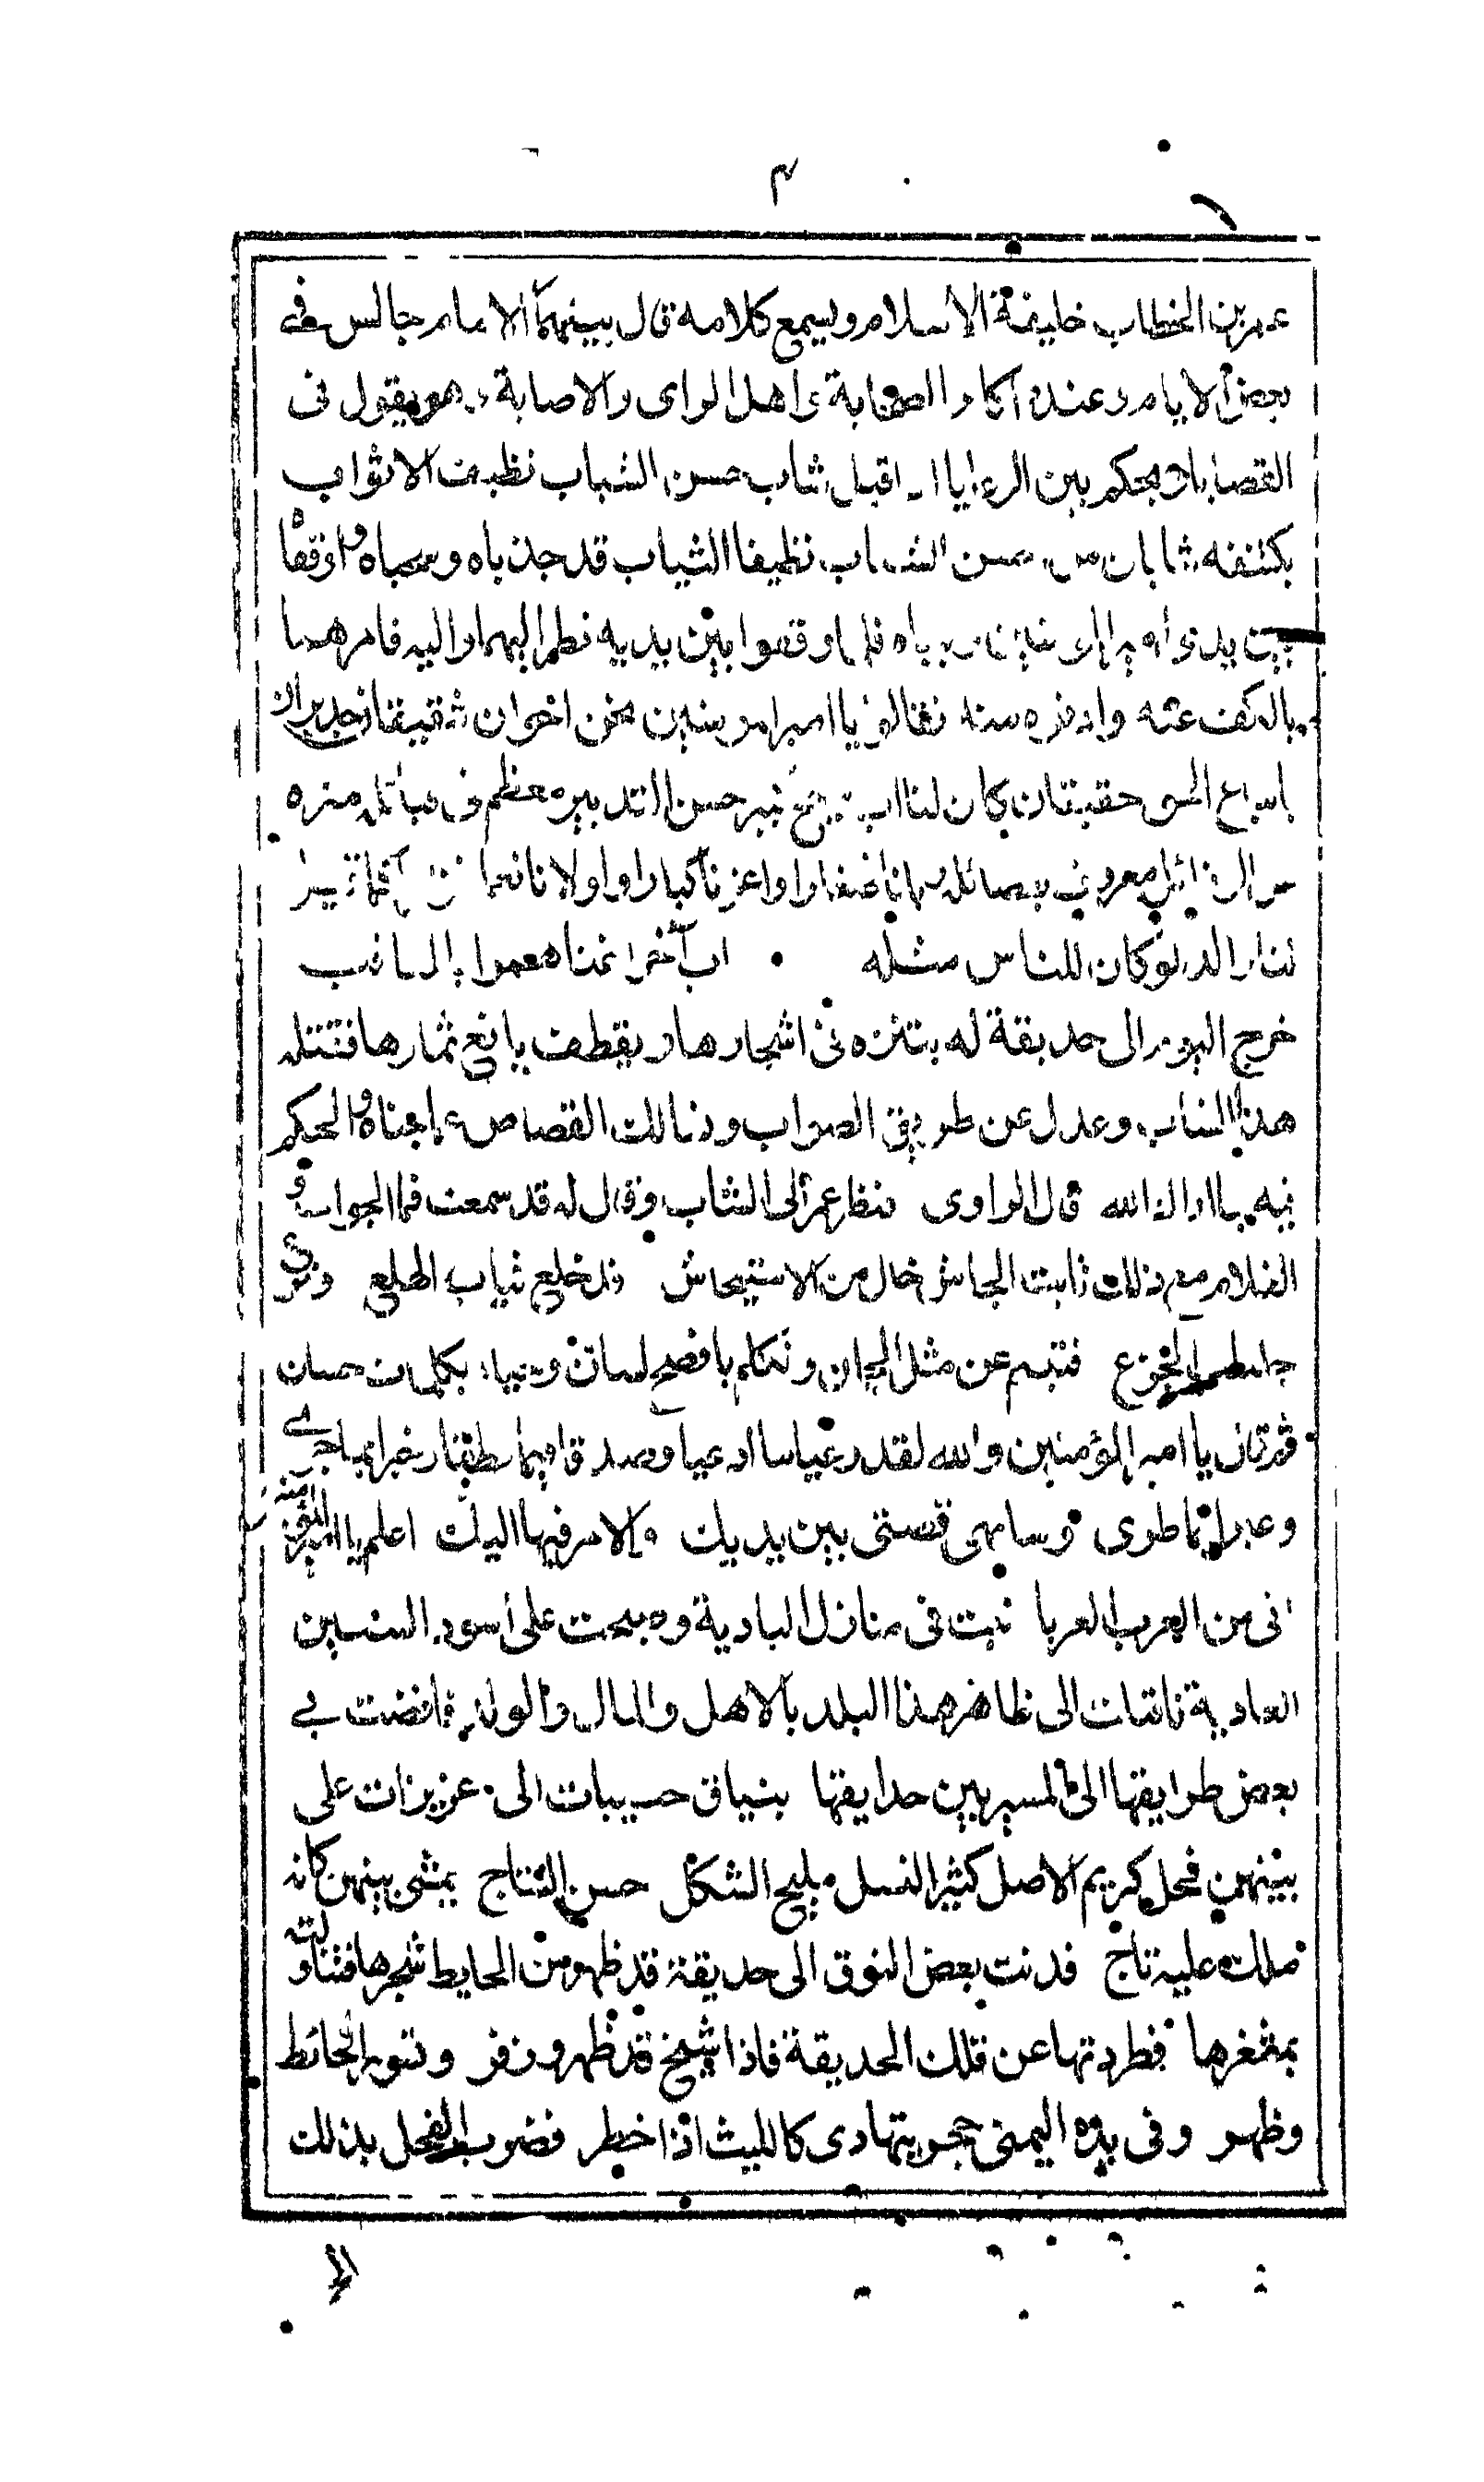 ٤
عمر بن الخطاب خليفة الاسلام ويسمع كلامه قال بينهما الامام جالس فى
بعض الايام وعنده اكابر الصحابة واهل الراى والاصابة وهو يقول فى
القضايا ويحكم بين الرعايا اذ اقبل شاب حسن الشباب نظيف الاثواب
يكتنفه شابان من احسن الشباب نظيفا الثياب قد جذباه وسحباه واوقفاه
بين يدى امير المؤمنين ولبباه فلما وقفوا بين يديه نظر اليهما واليه فامرهما
بالكف عنه وادنوه منه فقالا يا امير المومنين نحن اخوان شقيقان جديران
باتباع الحق حقيقان كان لنا اب شيخ كبير حسن التدبير معظم فى قبائله منزه
عن الرذائل معروف بفضائله ربانا صغارا واعزنا كبارا واولانا نعما
لنا والد لو كان للناس مثله اب آخر اغناهم بالمناقب
خرج اليوم الى حديقة له يتنزه فى اشجارها ويقطف يانع ثمارها فقتله
هذا الشاب وعدل عن طريق الصواب ونسالك القصاص بما جناه والحكم
فيه بما اراك الله قال الراوى فنظر عمر الى الشاب وقال له قد سمعت فما الجواب و
الغلام مع ذلك ثابت الجاش خال من الاستيحاش قد خلع ثياب الهلع ونزع
جلباب الجزع فتبسم عن مثل الجمان وتكلم بافصح لسان وحياه بكلمات حسان
ثم قال يا امير المؤمنين والله لقد وعيا ما ادعيا وصدقا فيما نطقا وخبرا بما جرى
وعبرا بما طوى وسانهى قصتى بين يديك والامر فيها اليك اعلم يا امير المؤمنين
انى من العرب العربا نبت فى منازل البادية وصبحت على اسود السنين
العادية فاقبلت الى ظاهر هذا البلد بالاهل والمال والولد فافضت بى
بعض طرايقها الى المسير بين حدايقها بنياق حبيبات الى عزيزات على
بينهن فحل كريم الاصل كثير النسل مليح الشكل حسن النتاج يمشى بينهن كانه
ملك عليه تاج فدنت بعض النوق الى حديقة قد ظهر من الحايط شجرها فتناولته
بمشفرها فطردتها عن تلك الحديقة فاذا شيخ قد ظهر وزفر وتسور الحائط
وظهر وفى يده اليمنى حجر يتهادى كالليث اذا خطر فضرب الفحل بذلك